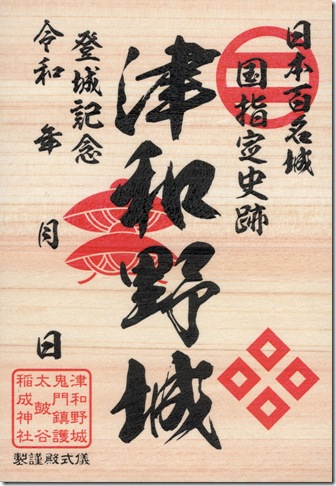 日本百名城
国指定史跡
津和野城
登城記念
令和 年 月 日
津和野城
鬼門鎮護
太皷谷
稲成神社
儀式殿謹製